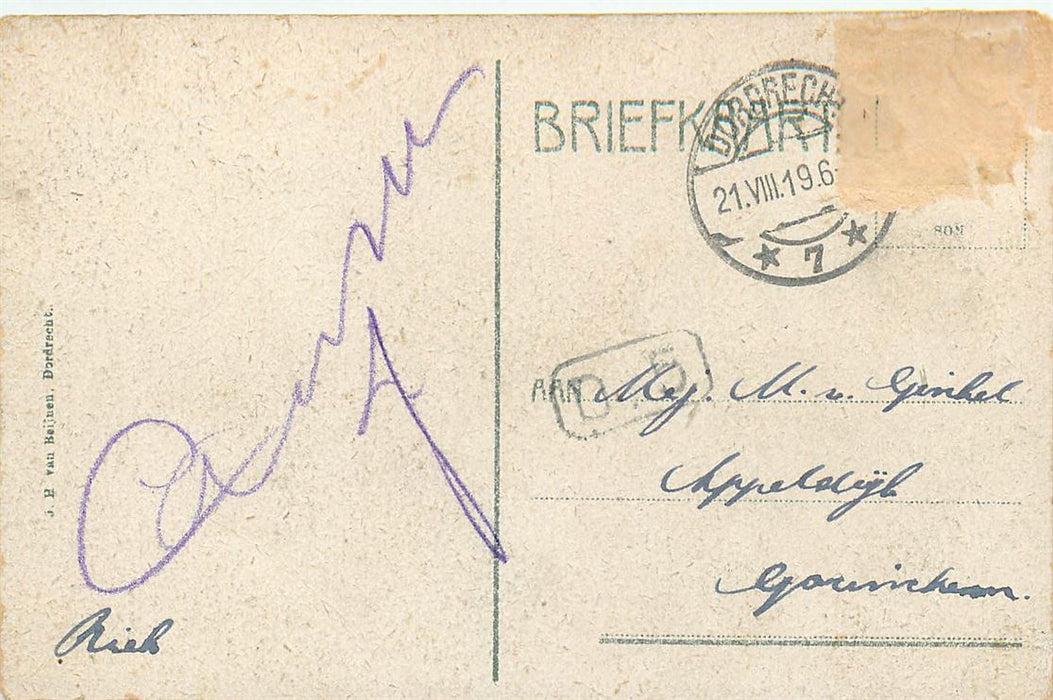 BRIEFKAART
DORDRECHT
21.VIII.19.6-
7
AAN Mej. M. v. Ginkel
Appeldijk
Gorinchem.
Riek
J. H. van Beijnen, Dordrecht.